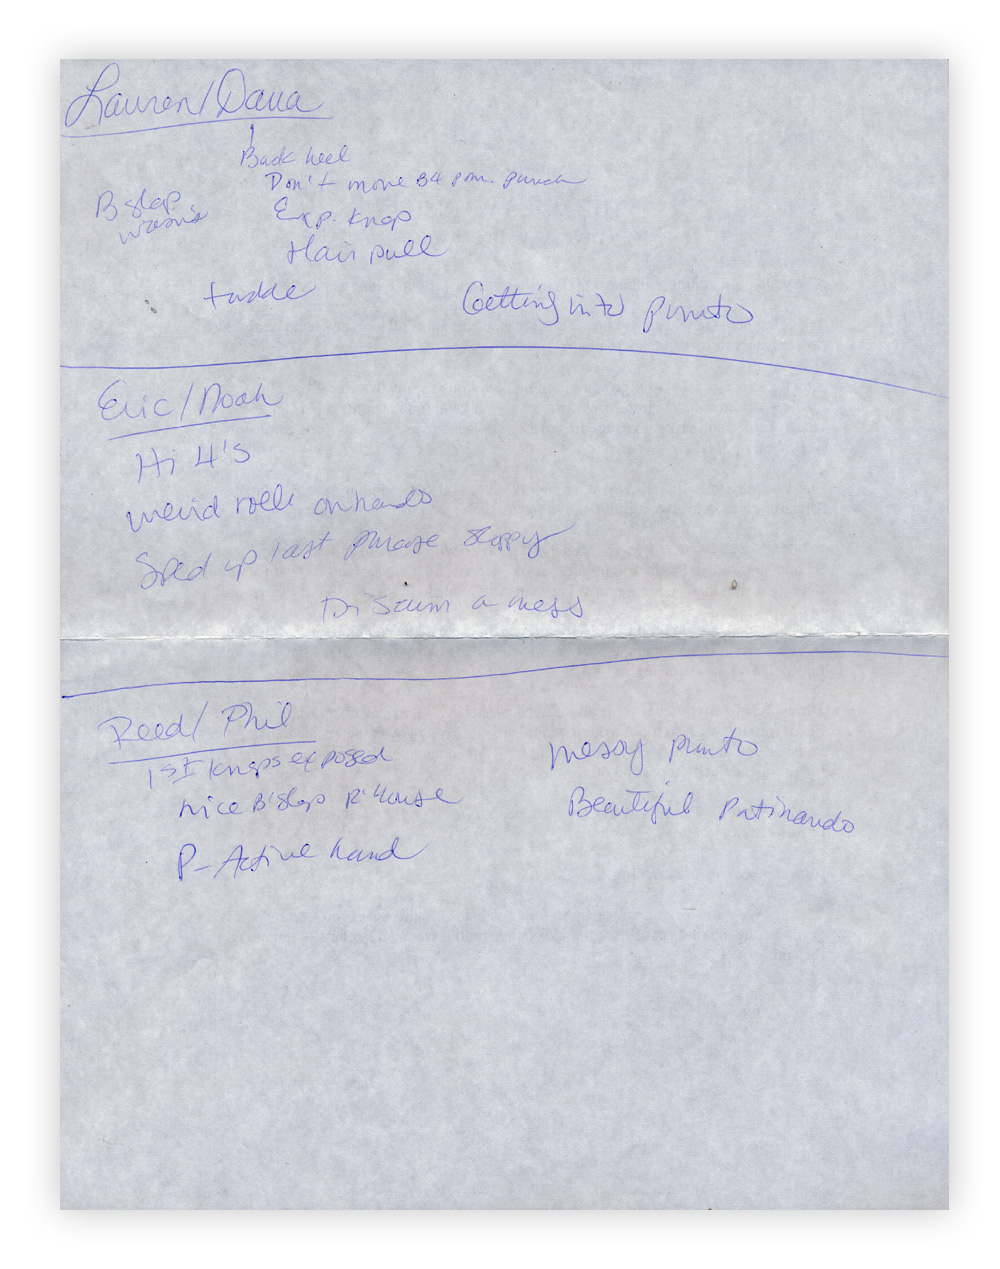 Lauren/Dana
Back heel
Don't move B4 pom. punch
B slap
Exp. Knap
Hair pull
Getting into punto
Eric/Noah
Hi 4's
weird roll on hands
Sped up last phrase sloppy
Disarm a mess
Reed/Phil
1st Knaps exposed
nice B'slap R'house
P-Active hand
messy punto
Beautiful Patinando